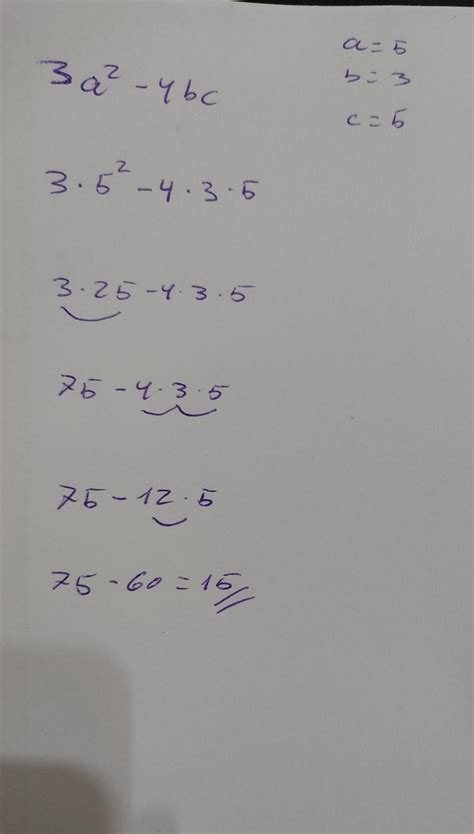 3a² - 4bc
a = 5
b = 3
c = 5
3 · 5² - 4 · 3 · 5
3 · 25 - 4 · 3 · 5
75 - 4 · 3 · 5
75 - 12 · 5
75 - 60 = 15